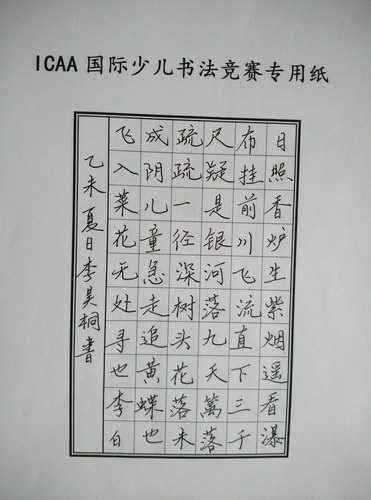 ICAA国际少儿书法竞赛专用纸
日照香炉生紫烟遥看瀑
布挂前川飞流直下三千
尺疑是银河落九天篱落
疏疏一径深树头花落未
成阴儿童急走追黄蝶也
飞入菜花无处寻也李白
乙未夏日李昊桐書